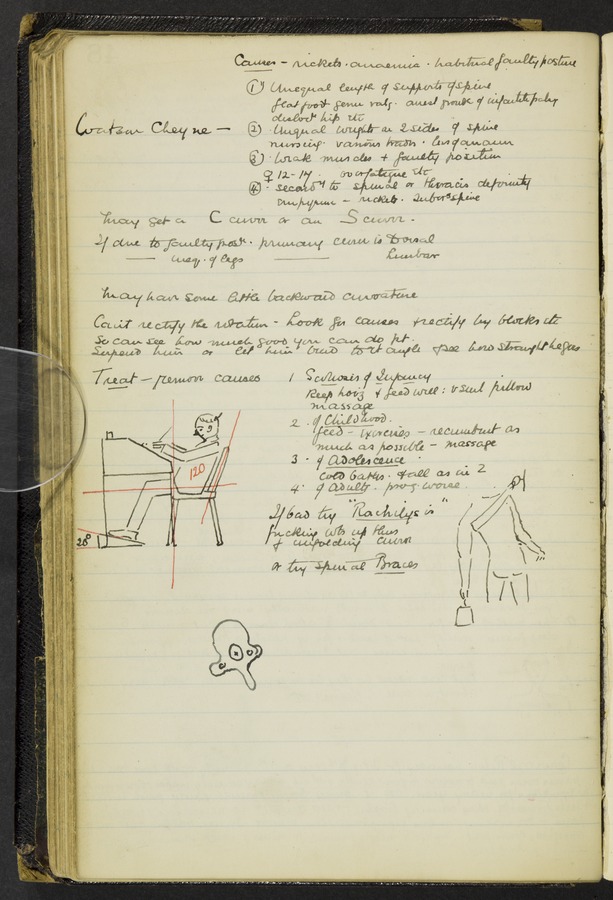 Causes - rickets. anaemia. habitual faulty posture
① Unequal length of supports of spine
flat foot genu valg. arrest growth of infantile paly
dislocn hip etc
Watson Cheyne -
② Unequal weights on 2 sides of spine
nursing. various trades.
③ Weak muscles + faulty position
♀ 12-17. overfatigue etc
④ secondy to spinal or thoracic deformity
empyema - rickets. tubers spine
May get a C curve or an S curve.
If due to faulty posn. primary curve is Dorsal
ineq. of legs Lumbar
May have some little backward curvature
Can't rectify the rotation - Look for causes & rectify by blocks etc
So can see how much good you can do pt.
Suspend him or let him bend to rt angle & see how straight he goes
Treat - remove causes
1 Scoliosis of Infancy
Keep horiz & feed well: vsail pillow
massage
2. of Childhood.
feed - Exercises - recumbent as
much as possible - massage
3. of Adolescence
cold baths. & all as in 2
4. of Adults. prog worse.
If bad try "Rachilysis"
wts up thus
& unfolding curve
or try spinal Braces
120
28°